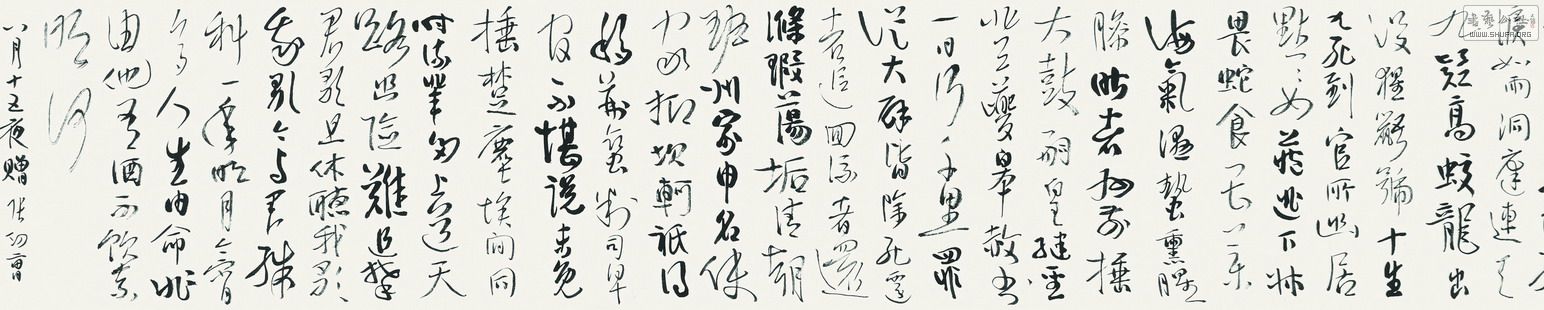 淚如雨洞庭連天
九疑高蛟龍出
沒猩鼯號十生
九死到官所幽居
默默如藏逃下牀
畏蛇食畏藥
海氣濕蟄熏腥
臊昨者州前捶
大鼓嗣皇繼聖
登夔皋赦書
一日行千里罪
從大辟皆除死遷
者追回流者還
滌瑕蕩垢清朝
班州家申名使
家抑坎軻祗得
移荊蠻判司卑
官不堪說未免
捶楚塵埃間同
時流輩多上道天
路幽險難追攀
君歌且休聽我歌
我歌今與君殊
科一年明月今宵
多人生由命非
由他有酒不飲奈
明何
八月十五夜贈張功曹
WWW.SHUFA.ORG